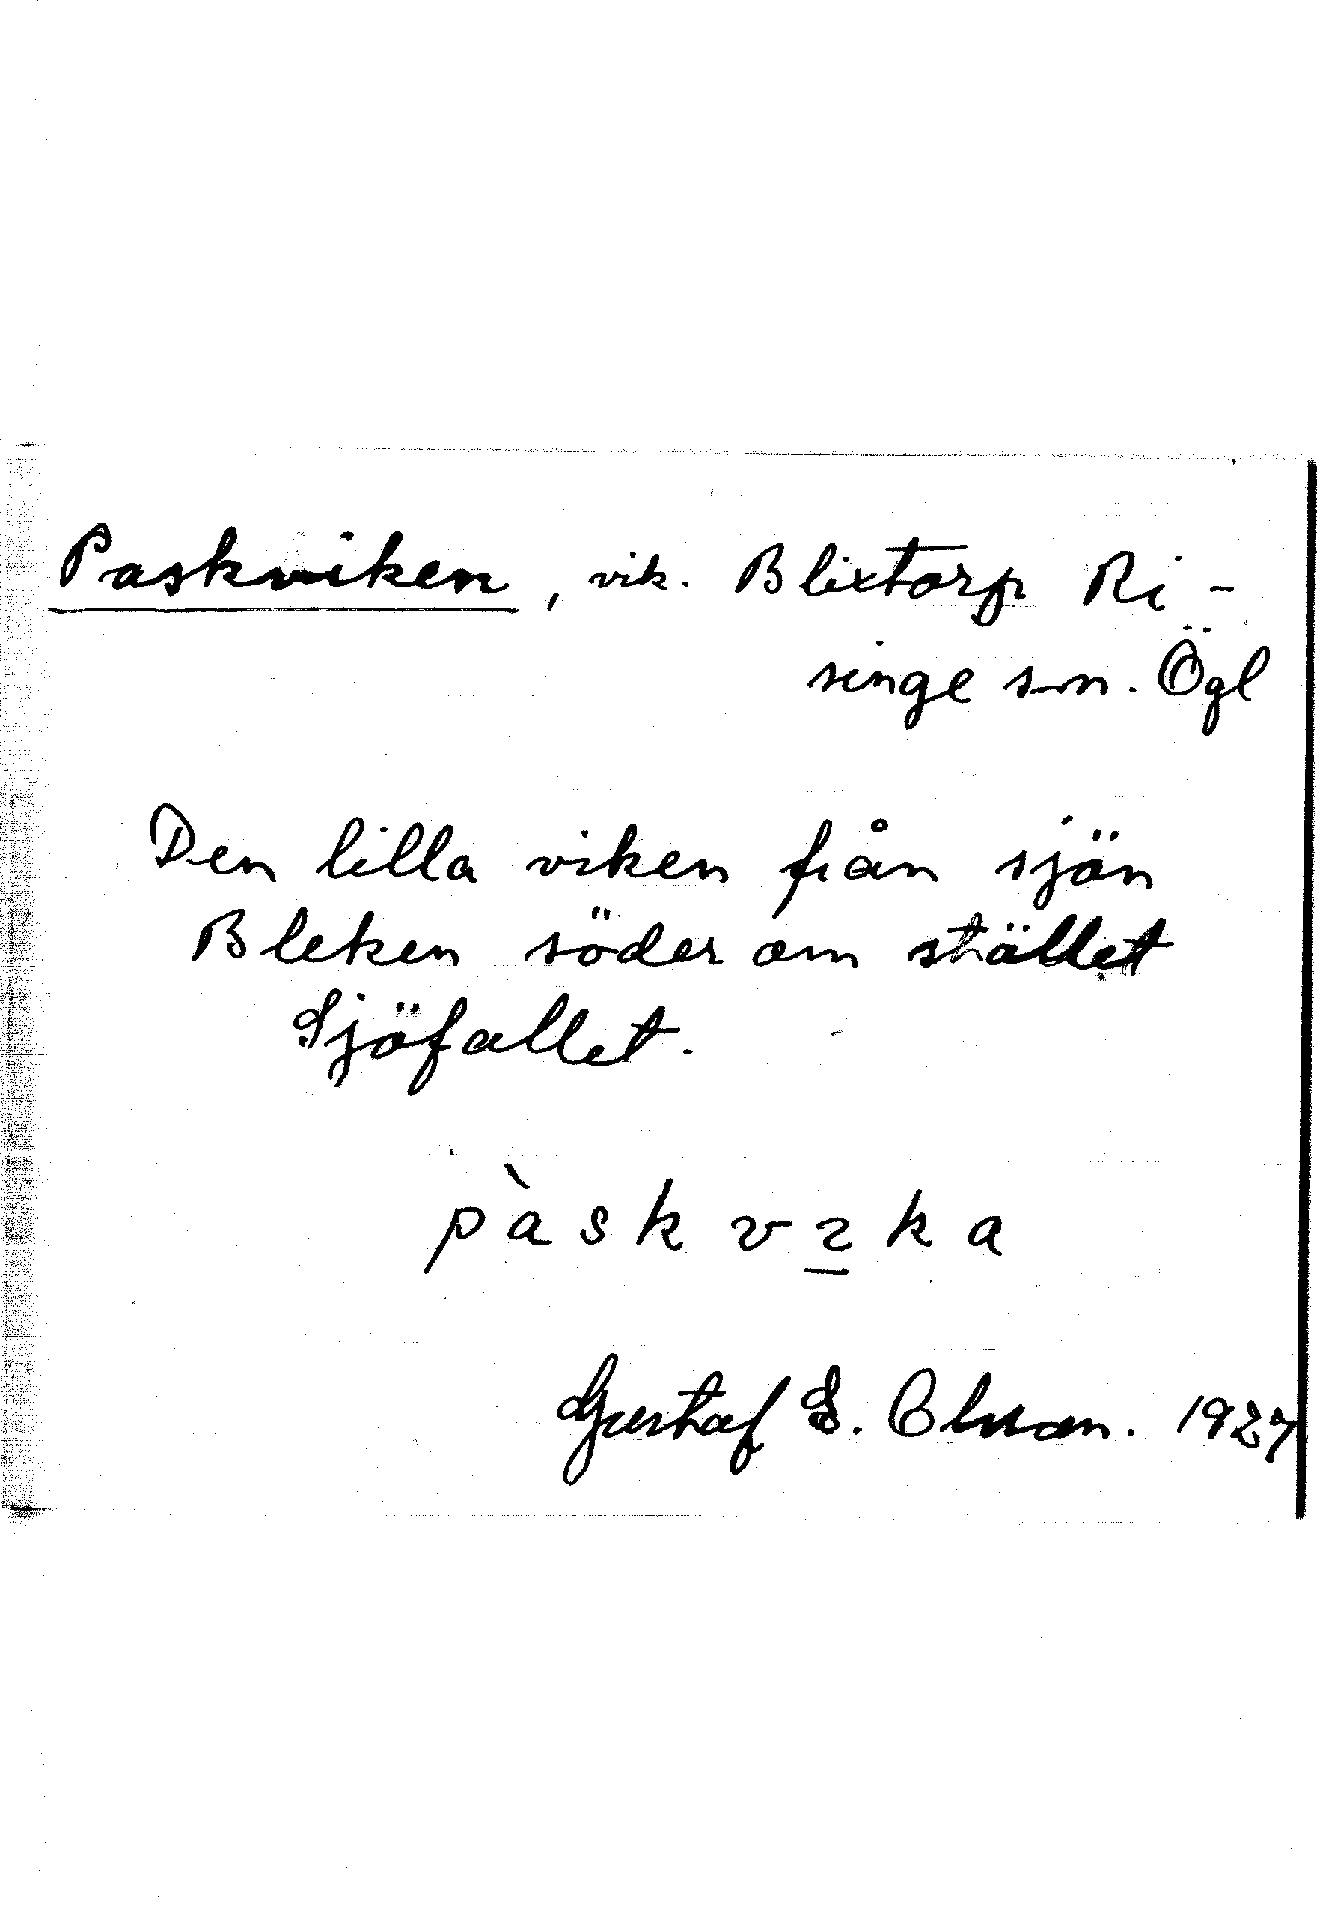 Paskviken, vik. Blixtorp Ri-
singe s-n. Ögl
Den lilla viken från sjön
Bleken söder om stället
Sjöfallet.
pàskvıka
Gustaf S. Clason. 1927